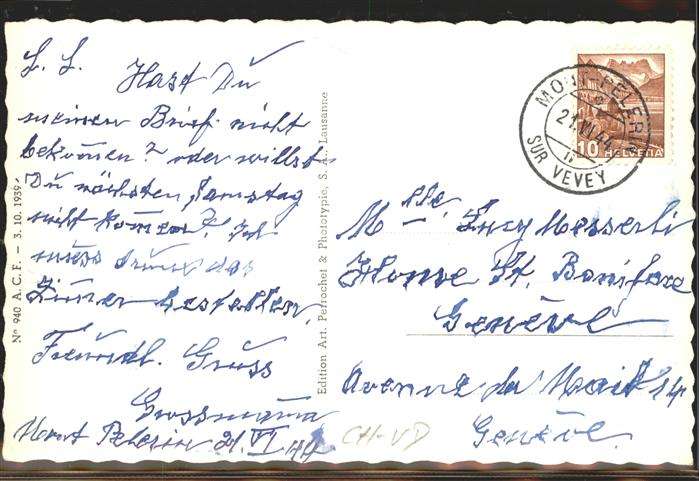 L. L. Hast Du
meinen Brief nicht
bekommen? oder willst
Du nächsten Samstag
nicht kommen? Ich
muss drum das
Zimmer bestellen.
Freundl. Gruss
Grossmama
Mont Pelerin 21. VI 44
Nº 940 A. C. F. — 3. 10. 1939.
Edition Art. Perrochet & Phototypie, S. Lausanne
MONT-PÉLERIN
21.VI.44.
SUR VEVEY
10 HELVETIA
Mlle. Lucy Messerli
St. Boniface
Genève
Avenue du Mail 14
Genève.
CH-VD